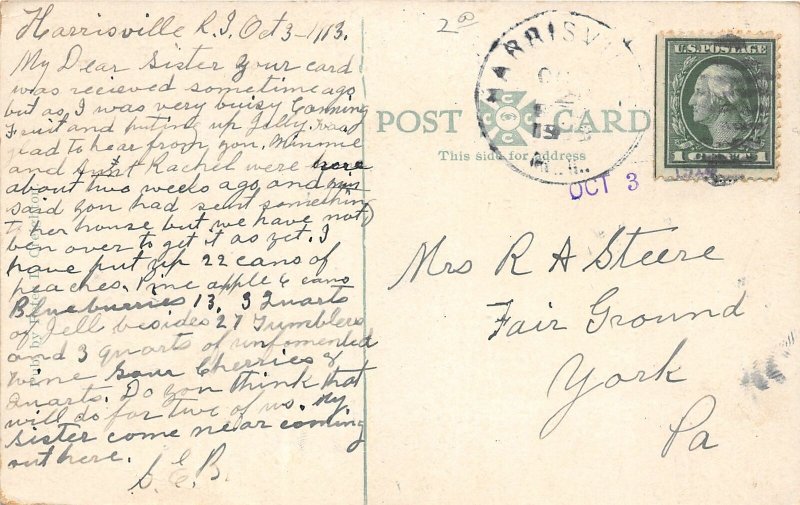 Harrisville R.I. Oct 3-1913.
My Dear Sister your card
was recieved sometime ago
but as I was very buisy Canning
Fruit and puting up Jelly. was
glad to hear from you. Minnie
and Aunt Rachel were here
about two weeks ago and
said you had sent something
to her house but we have not
ben over to get it as yet. I
have put up 22 cans of
peaches. Pine apple 6 cans
Blueburries 13. 3 Quarts
of Jell besides 27 Tumblers
and 3 quarts of unfomented
wine Sour Cherries 8
Quarts. Do you think that
will do for two of us. My
Sister come near coming
out here.
S. E. B.
2 00
POST CARD
This side for address
HARRISV
OCT 3
U.S. POSTAGE
1 CENT 1
Mrs R A Steere
Fair Ground
York
Pa
Pub. by